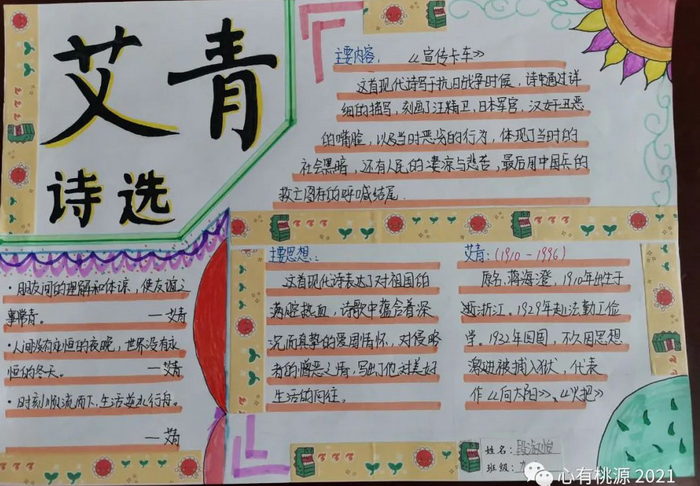 艾青
诗选
主要内容: 《宣传卡车》
这首现代诗写于抗日战争时候,诗中通过详
细的描写,刻画了汪精卫,日本军官,汉奸丑恶
的嘴脸,以及当时恶劣的行为,体现了当时的
社会黑暗,还有人民的凄凉与悲苦,最后用中国兵的
救亡图存的呼喊结尾.
·朋友间的理解和体谅,使友谊之
事常青。 —艾青
·人间没有永恒的夜晚,世界没有永
恒的冬天。 —艾青
·时刻顺流而下,生活逆水行舟。
—艾青
主要思想:
这首现代诗表达了对祖国的
满腔热血,诗歌中蕴含着深
沉而真挚的爱国情怀,对侵略
者的憎恶之情,写出了他对美好
生活的向往。
艾青:(1910-1996)
原名,蒋海澄,1910年出生于
浙江.1929年赴法勤工俭
学。1932年回国,不久因思想
激进被捕入狱,代表
作《向太阳》、《火把》
姓名:
班级:
心有桃源 2021